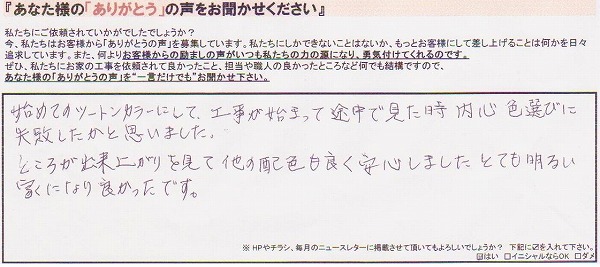 『あなた様の「ありがとう」の声をお聞かせください』
私たちにご依頼されていかがでしたでしょうか？
今、私たちはお客様から「ありがとうの声」を募集しています。私たちにしかできないことはないか、もっとお客様にして差し上げることは何かを日々
追求しています。また、何よりお客様からの励ましの声がいつも私たちの力の源になり、勇気付けてくれるのです。
ぜひ、私たちにお家の工事を依頼されて良かったこと、担当や職人の良かったところなど何でも結構ですので、
あなた様の「ありがとうの声」を“一言だけでも”お聞かせ下さい。
始めてのツートンカラーにして、工事が始まって途中で見た時 内心 色選びに
失敗したかと思いました。
ところが出来上がりを見て他の配色も良く安心しました とても明るい
家になり良かったです。
※ HPやチラシ、毎月のニュースレターに掲載させて頂いてもよろしいでしょうか？ 下記に☑を入れて下さい。
☑はい □イニシャルならOK □ダメ